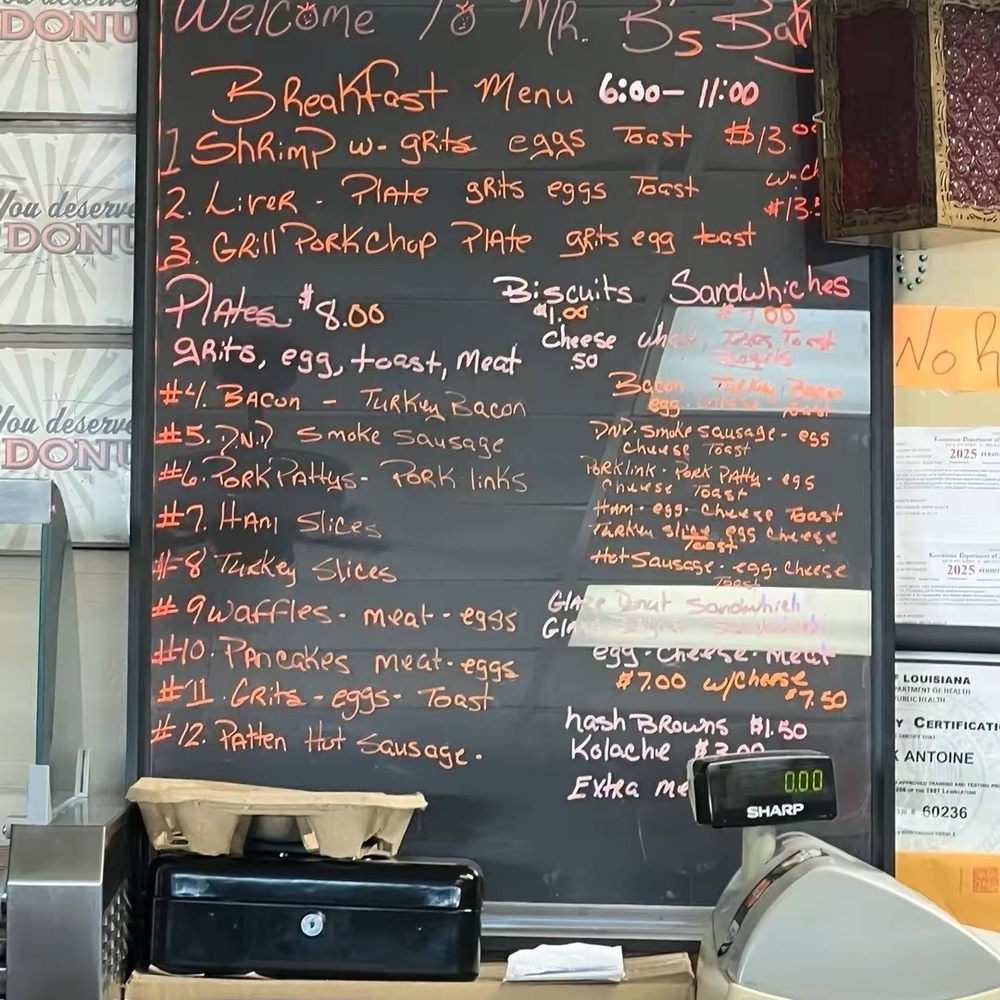 Welcome To Mr. B's
Breakfast Menu 6:00 - 11:00
1 Shrimp w- grits eggs Toast $13.00
2. Liver - Plate grits eggs Toast
3. Grill Pork Chop Plate grits egg toast
Plates $8.00
grits, egg, toast, Meat
#4. Bacon - Turkey Bacon
#5. D.N.D Smoke Sausage
#6. Pork Pattys - Pork links
#7. Ham Slices
#8 Turkey Slices
#9 waffles - meat - eggs
#10. Pancakes meat - eggs
#11. Grits - eggs - Toast
#12. Patten Hot Sausage.
Biscuits Sandwhiches
$1.00
Cheese wheat, Texas Toast
.50
Bacon Turkey Bacon
egg
Smoke Sausage - egg
Cheese Toast
Pork link - Pork Patty - egs
Cheese Toast
Ham - egg - Cheese Toast
Turkey Slice egg Cheese
Toast
Hot Sausage - egg - Cheese
Toast
Glaze Donut Sandwhich
egg - Cheese - Meat
$7.00 w/Cheese
$7.50
hash Browns $1.50
Kolache $3.00
Extra me
0.00
SHARP
You deserve
DONU
You deserve
DONU
You deserve
DONU
No R
2025
2025
LOUISIANA
PUBLIC HEALTH
Y CERTIFICATI
ANTOINE
60236